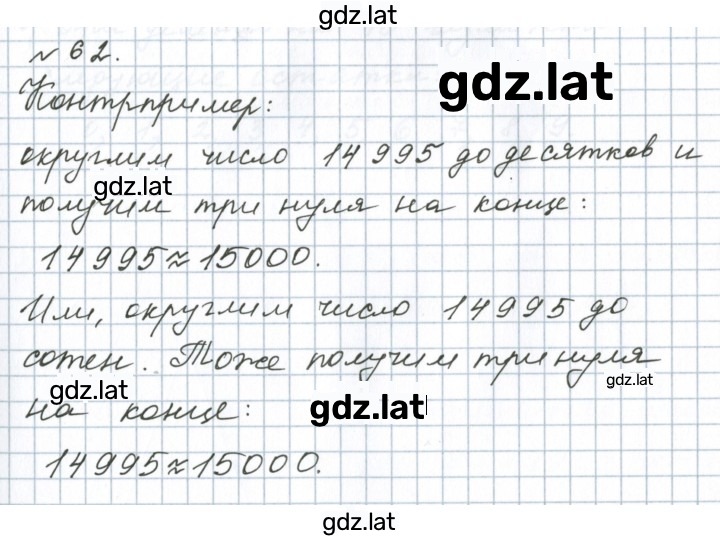 gdz.lat
№ 62.
gdz.lat
Контрпример:
округлим число 14 995 до десятков и
gdz.lat
получим три нуля на конце:
14995≈15000.
Или, округлим число 14995 до
сотен. Тоже получим три нуля
gdz.lat
gdz.lat
на конце:
gdz.lat
14995≈15000.
gdz.lat